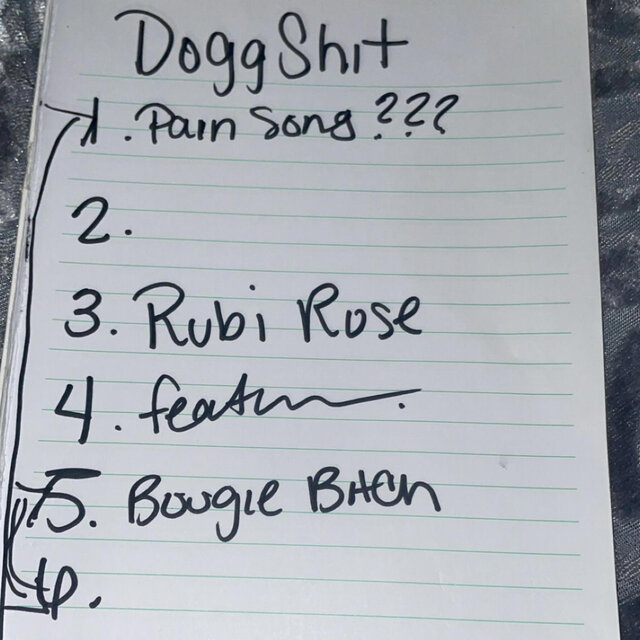 Dogg Shit
1. Pain Song ???
2.
3. Rubi Rose
4. featu
5. Bougie Bitch
6.